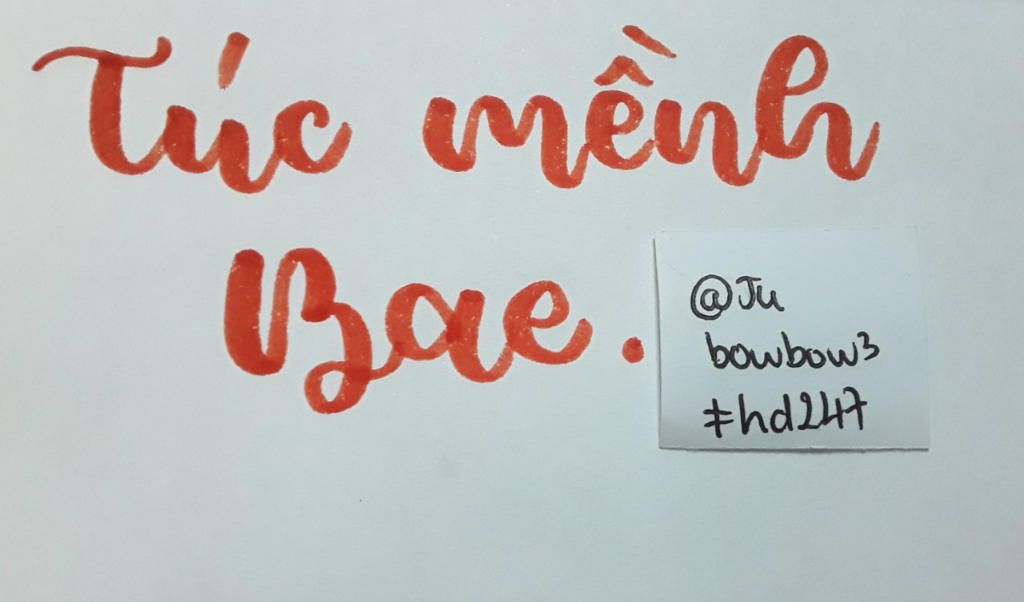 Túc mềnh
Bae.
@Ju
bowbow3
#hd247